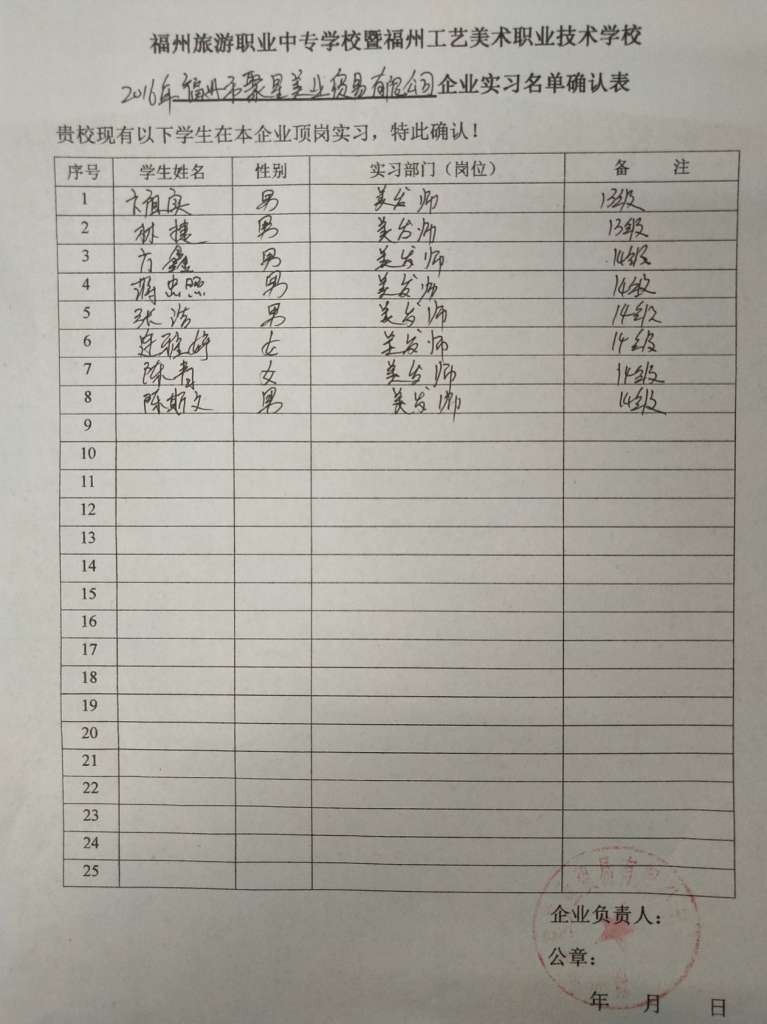 福州旅游职业中专学校暨福州工艺美术职业技术学校
2016年福州市聚星美业贸易有限公司企业实习名单确认表
贵校现有以下学生在本企业顶岗实习，特此确认！
序号 学生姓名 性别 实习部门（岗位） 备 注
1 卞祖实 男 美发师 13级
2 林捷 男 美发师 13级
3 方鑫 男 美发师 14级
4 蒋忠照 男 美发师 14级
5 张浩 男 美发师 14级
6 女 美发师 14级
7 陈青 女 美发师 14级
8 陈斯文 男 美发师 14级
9
10
11
12
13
14
15
16
17
18
19
20
21
22
23
24
25
企业负责人：
公章：
年 月 日